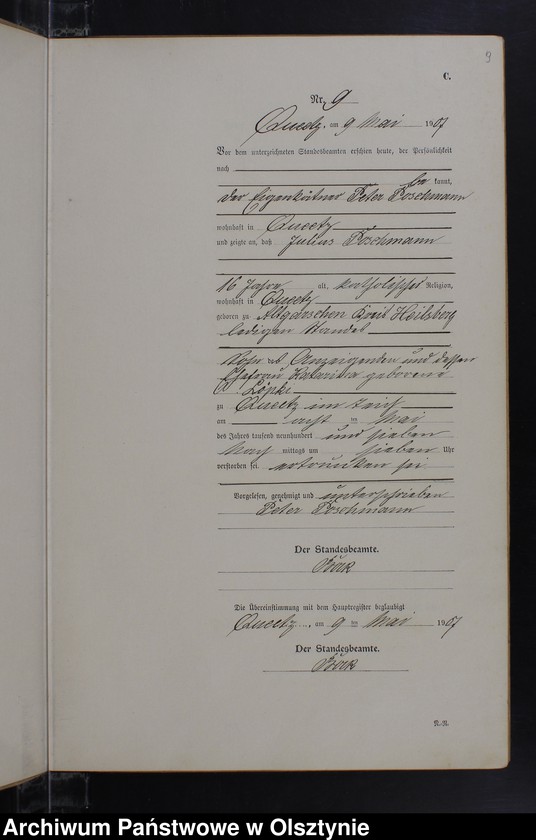 9
C.
Nr. 9
Queetz am 9 Mai 1907
Vor dem unterzeichneten Standesbeamten erschien heute, der Persönlichkeit
nach
be kannt,
der Eigenkätner Peter Poschmann
wohnhaft in Queetz
und zeigte an, daß Julius Poschmann
16 Jahre alt, katholischer Religion,
wohnhaft in Queetz
geboren zu Altgarschen Kreis Heilsberg
ledigen Standes
Sohn des Anzeigenden und dessen
Ehefrau Katarina geborene
zu Queetz im Teich
am acht ten Mai
des Jahres tausend neunhundert und sieben
Nach mittags um sieben Uhr
verstorben sei. ertrunken sei
Vorgelesen, genehmigt und unterschrieben
Peter Poschmann
Der Standesbeamte.
Die Übereinstimmung mit dem Hauptregister beglaubigt
Queetz, am 9 ten Mai 1907
Der Standesbeamte.
Archiwum Państwowe w Olsztynie